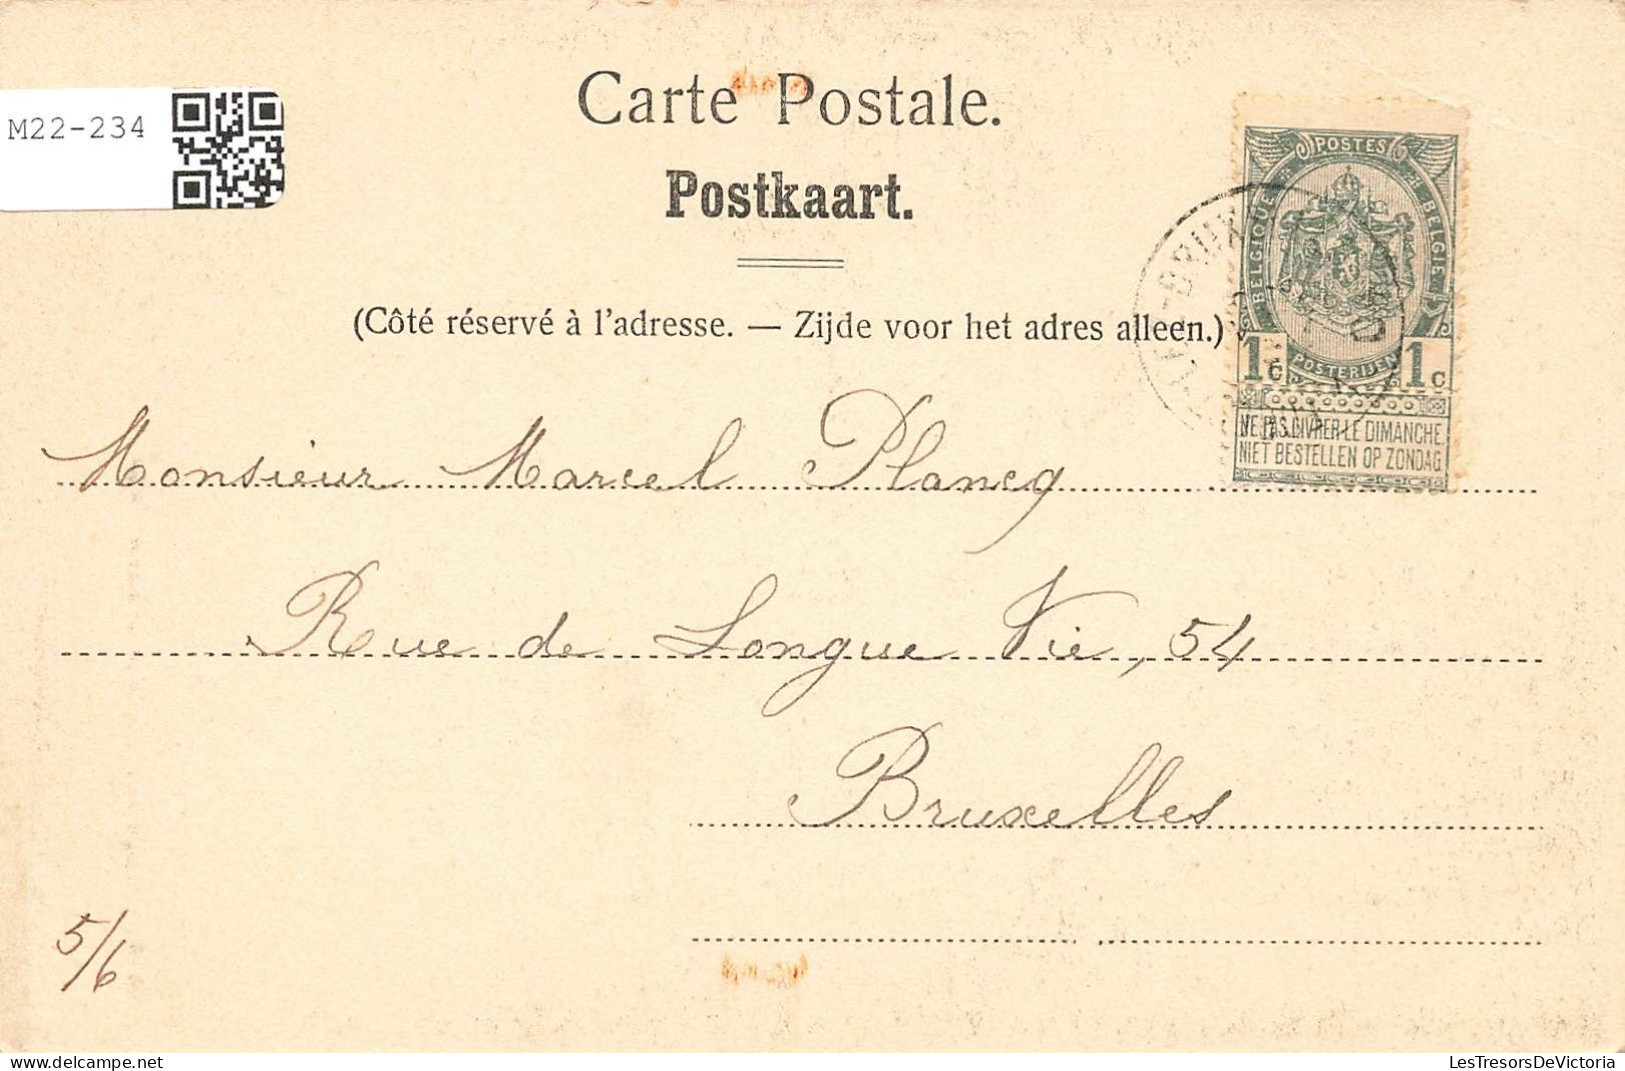 Carte Postale.
M22-234
Postkaart.
POSTES
BELGIQUE
BELGIË
(Côté réservé à l'adresse. — Zijde voor het adres alleen.)
POSTERIJEN
1c 1c
NE PAS LIVRER LE DIMANCHE.
NIET BESTELLEN OP ZONDAG
Monsieur Marcel Plancq
Rue de Longue Vie, 54
Bruxelles
5/6
LesTresorsDeVictoria